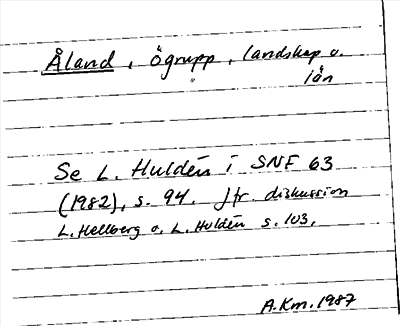 Åland, ögrupp, landskap o.
län
Se L. Huldén i SNF 63
(1982), s. 94. Jfr. diskussion
L. Hellberg o. L. Huldén s. 103.
A.Km. 1987